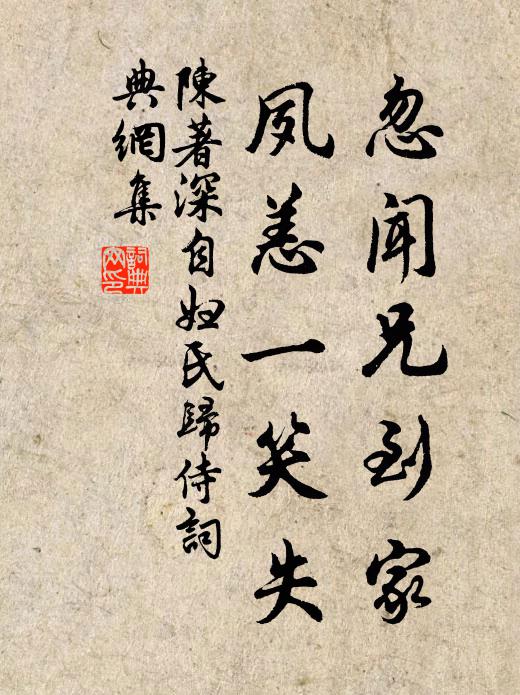 忽聞兄到家
夙恙一笑失
陳著深自妲氏歸侍詞
典網集
詞典
网印